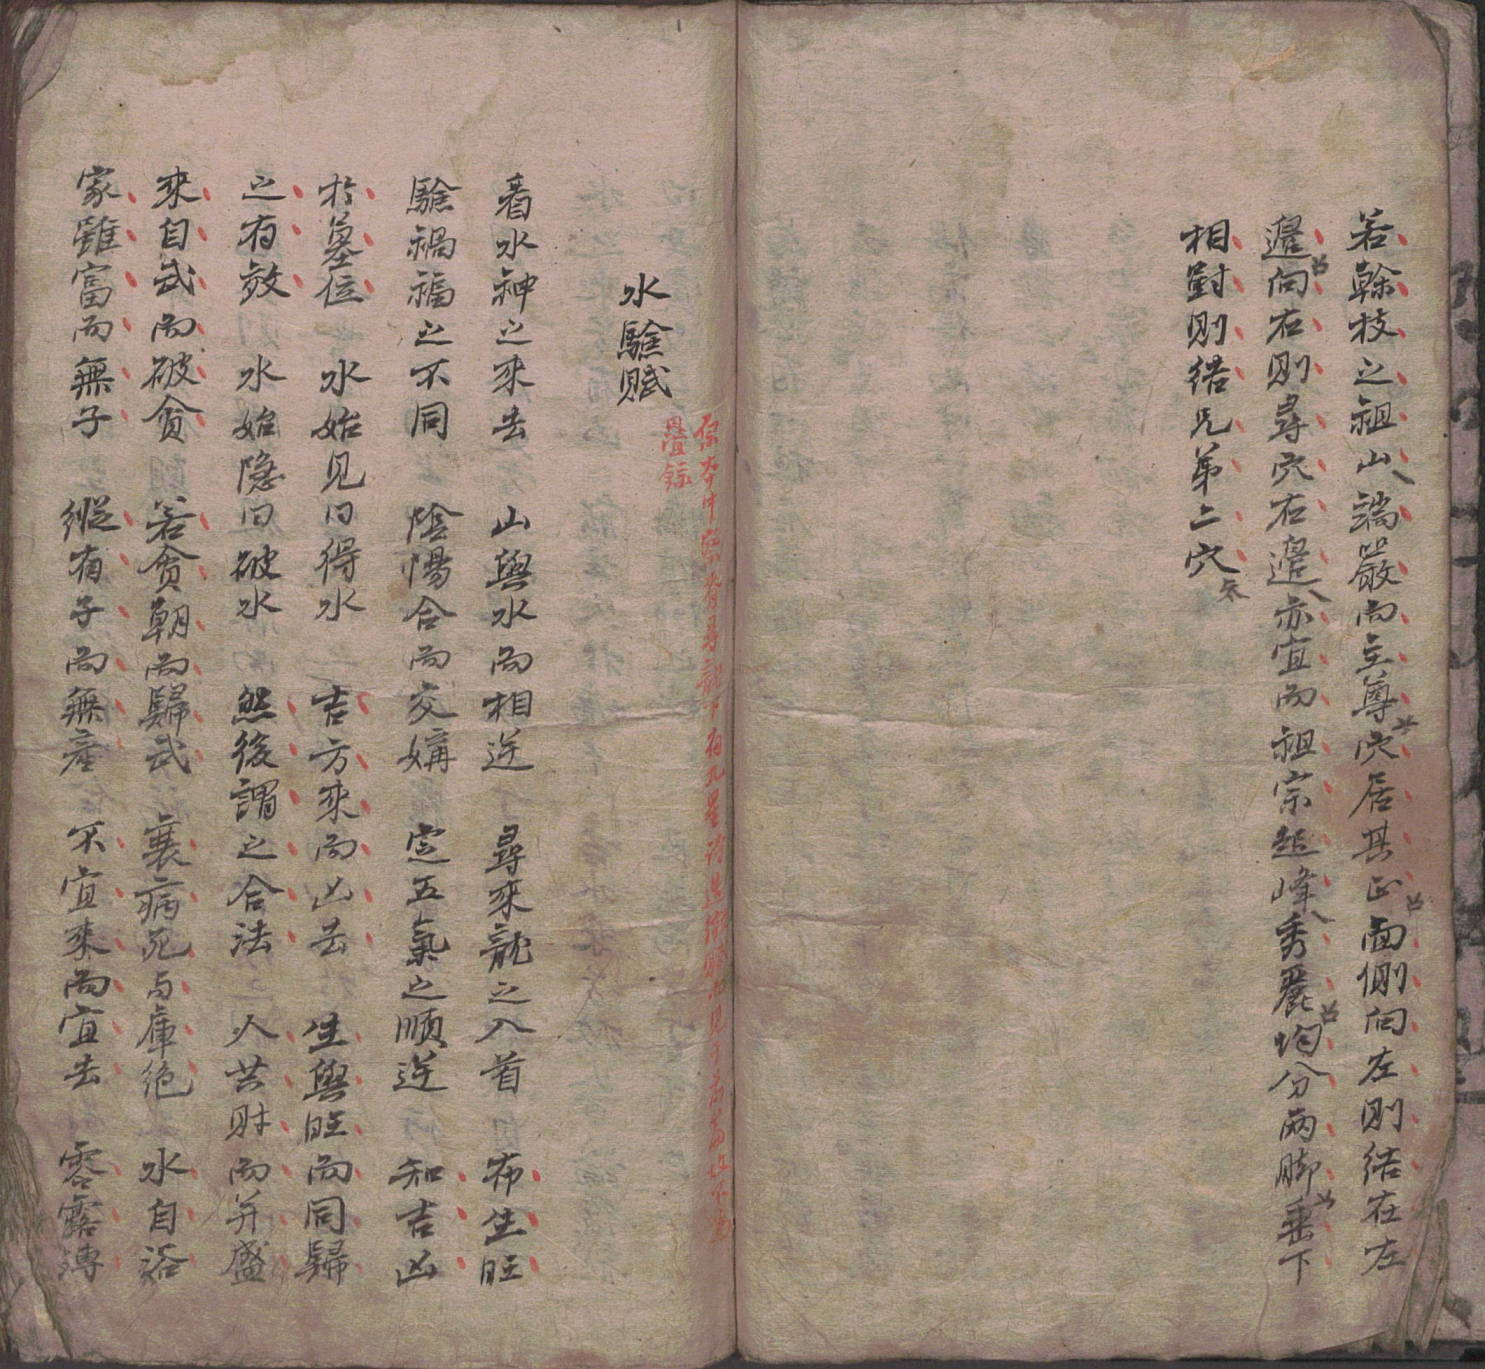 若幹枝之祖山端嚴而主尊穴居其正面側向左則結在左
邉向右則尋穴右邉亦宜而祖宗起峰秀麗均分兩脚垂下
相對則结兄弟二穴
水騐賦
看水神之来去 山與水而相逆 尋来龍之入首 布生旺
騐禍福之不同 陰陽合而交媾 定五氣之順逆 知吉凶
扵墓位 水始見曰得水 吉方来而凶去 生與旺而同歸
之有效 水始隐曰破水 然後謂之合法 人共財而并盛
来自武而破貪 若貪朝而歸武 衰病死与庫绝 水自浴
家雖富而無子 縱有子而無産 不宜来而宜去 零露漙